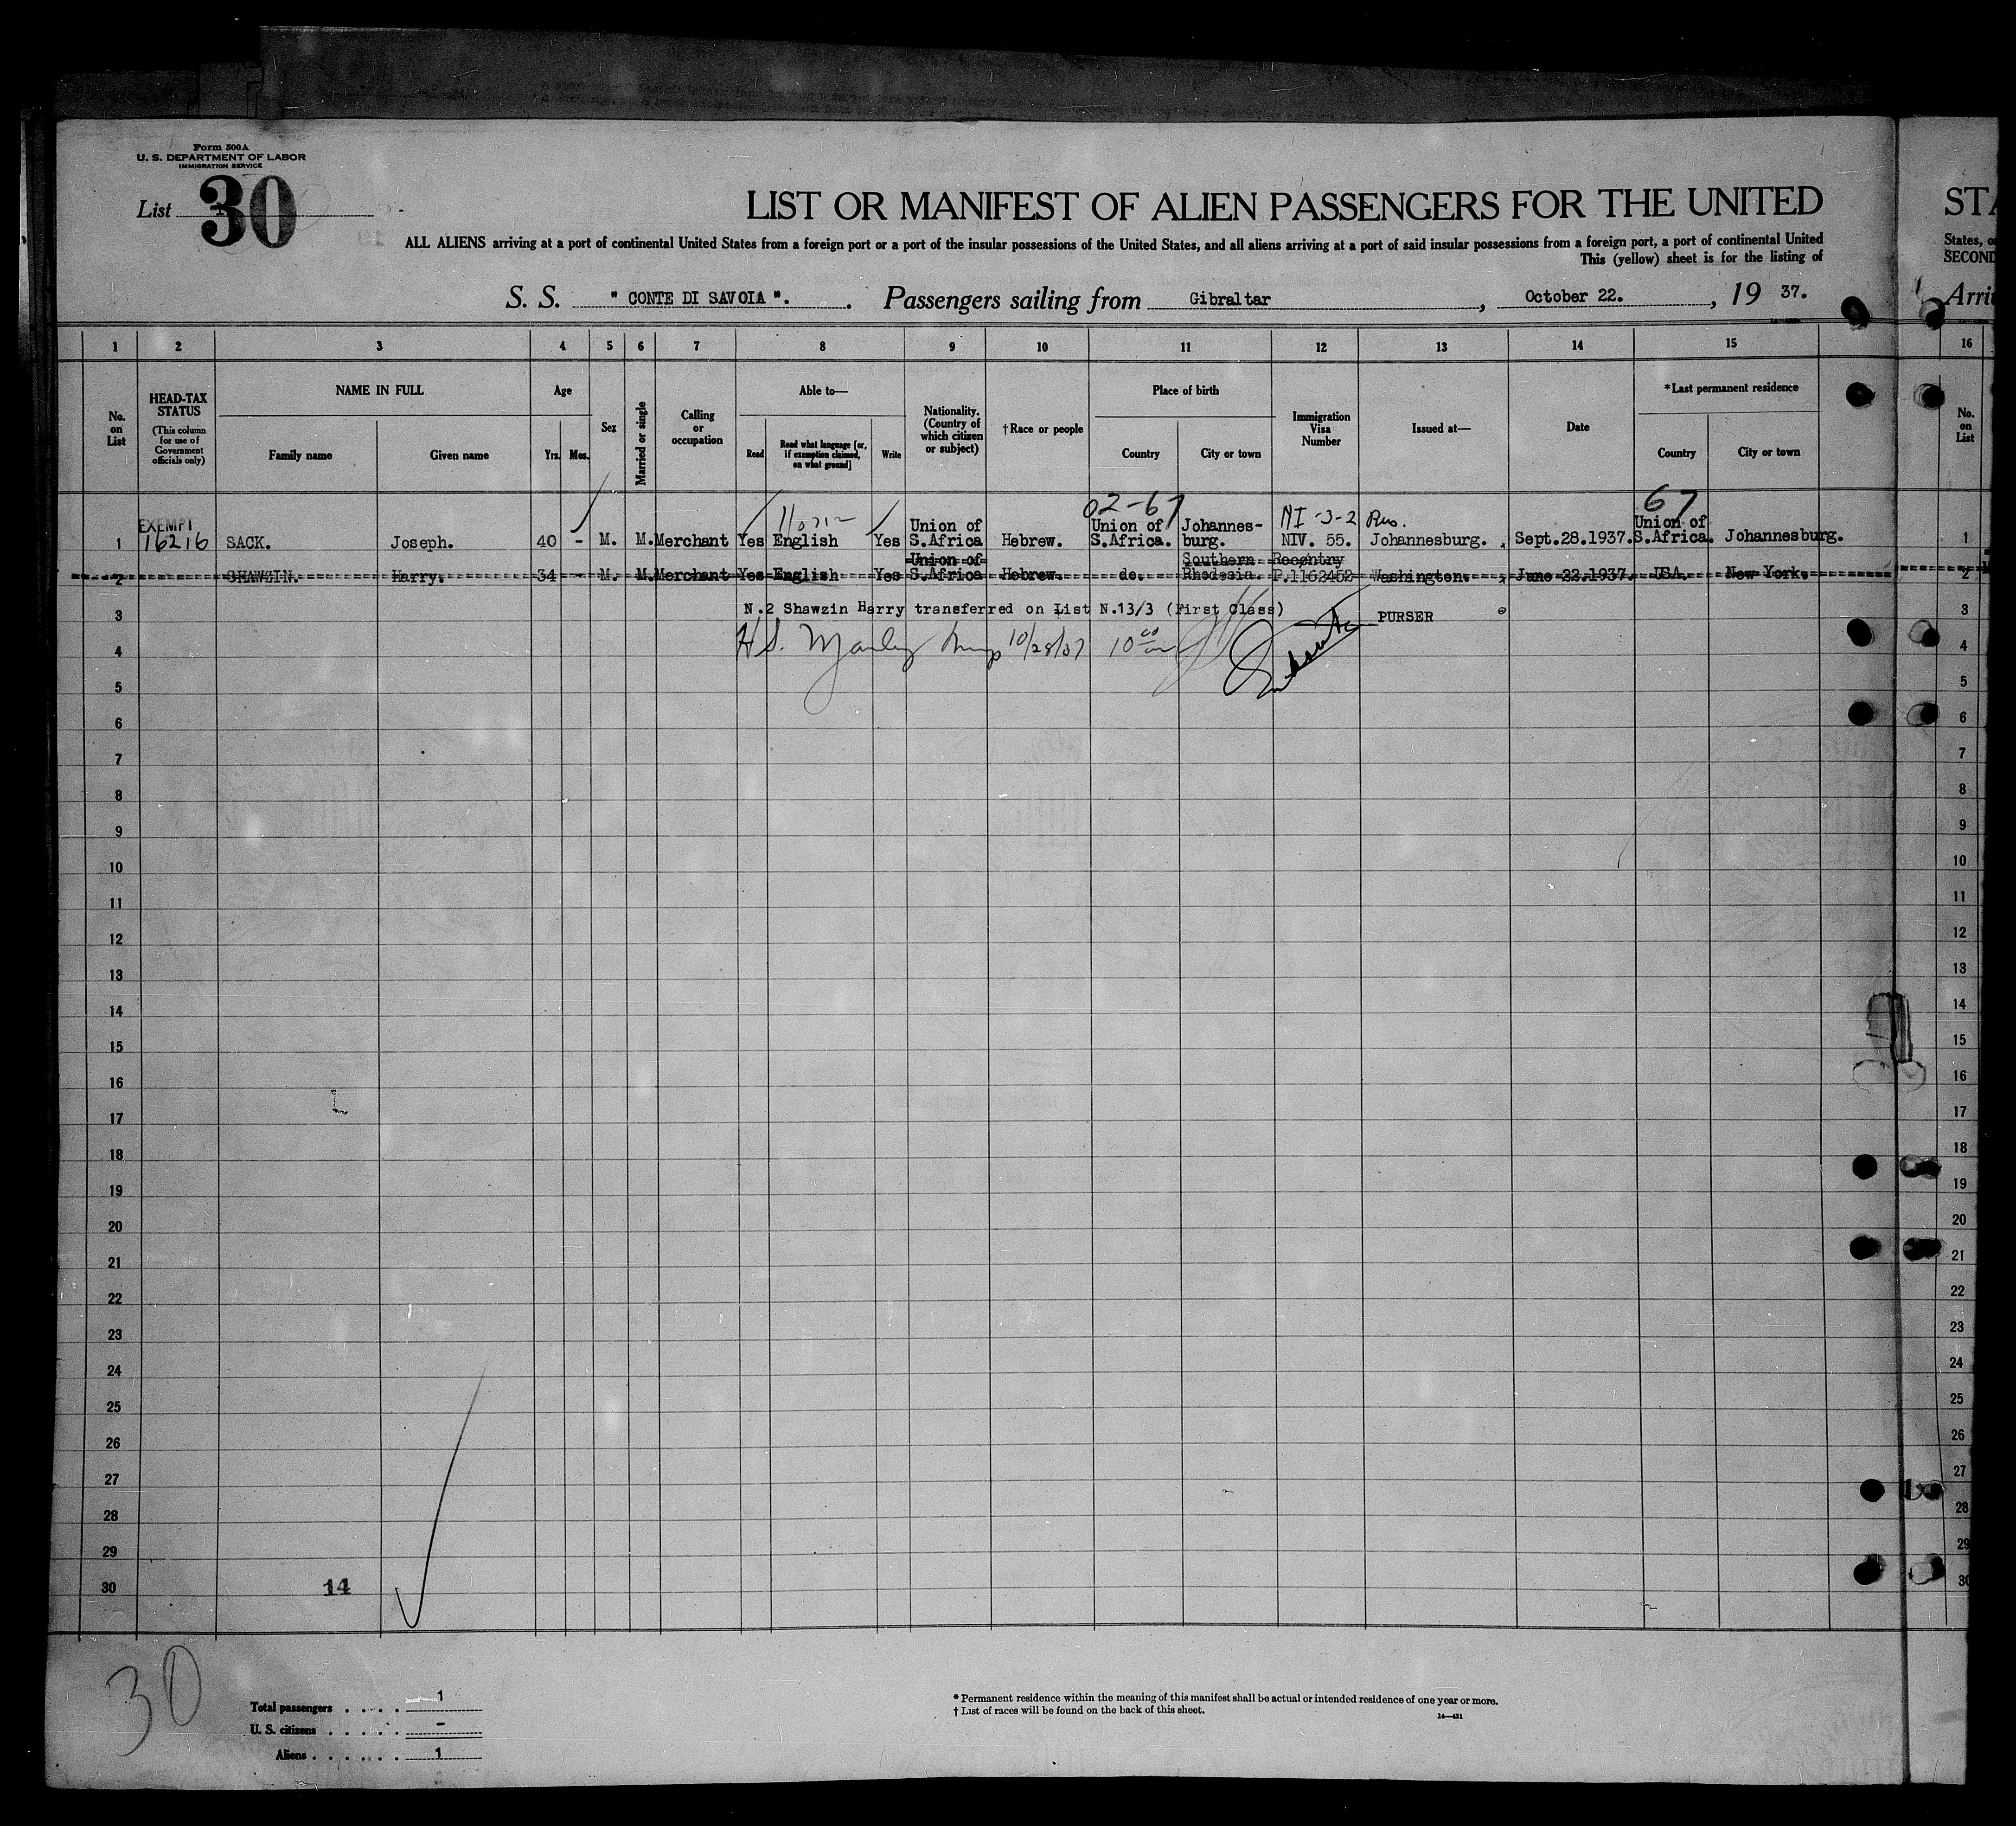 Form 500A
U. S. DEPARTMENT OF LABOR
IMMIGRATION SERVICE
List 30
LIST OR MANIFEST OF ALIEN PASSENGERS FOR THE UNITED
STA
ALL ALIENS arriving at a port of continental United States from a foreign port or a port of the insular possessions of the United States, and all aliens arriving at a port of said insular possessions from a foreign port, a port of continental United
States, o
This (yellow) sheet is for the listing of
SECOND
S. S. " CONTE DI SAVOIA ". Passengers sailing from Gibraltar, October 22., 19 37.
Arri
1 2 3 4 5 6 7 8 9 10 11 12 13 14 15 16
No. on List
HEAD-TAX STATUS
(This column for use of Government officials only)
NAME IN FULL
Family name
Given name
Age
Yrs.
Mos.
Sex
Married or single
Calling or occupation
Able to—
Read
Read what language [or, if exemption claimed, on what ground]
Write
Nationality. (Country of which citizen or subject)
†Race or people
Place of birth
Country
City or town
Immigration Visa Number
Issued at—
Date
*Last permanent residence
Country
City or town
No. on List
02-67 NI-3-2 67
1 EXEMPT 16216 SACK. Joseph. 40 - M. M. Merchant Yes English Yes Union of S.Africa Hebrew. Union of S.Africa. Johannes-burg. NIV. 55. Johannesburg. Sept.28.1937. Union of S.Africa. Johannesburg. 1
2 SHAWZIN. Harry. 34 - M. M. Merchant Yes English Yes Union of S.Africa Hebrew. do. Southern Rhodesia. Reentry P.1162452 Washington. June 22.1937. USA. New York. 2
3 N.2 Shawzin Harry transferred on List N.13/3 (First Class) PURSER 3
4 10/28/37 10 4
5 5
6 6
7 7
8 8
9 9
10 10
11 11
12 12
13 13
14 14
15 15
16 16
17 17
18 18
19 19
20 20
21 21
22 22
23 23
24 24
25 25
26 26
27 27
28 28
29 29
30 14 30
30
Total passengers . . . . 1
U. S. citizens . . . . . -
Aliens . . . . . . 1
* Permanent residence within the meaning of this manifest shall be actual or intended residence of one year or more.
† List of races will be found on the back of this sheet.